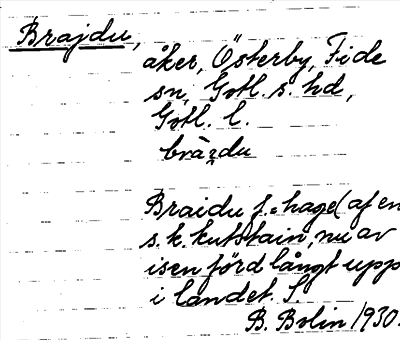 Brajdu,
åker, Österby, Fide
sn, Gotl. s. hd,
Gotl. l.
Braidu f. = hage (af en
s. k. kutstain, nu av
isen förd långt upp
i landet. S.
B. Bolin 1930.